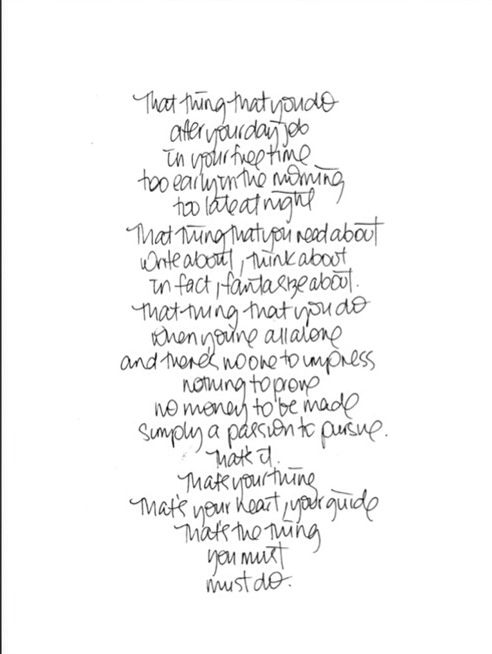 That thing that you do
after your day job
in your free time
too early in the morning
too late at night
That thing that you read about
write about, think about
in fact, fantasize about.
That thing that you do
when you're all alone
and there's no one to impress
nothing to prove
no money to be made
simply a passion to pursue.
That's it.
That's your thing
That's your heart, your guide
That's the thing
you must
must do.